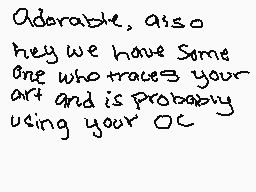 adorable, also
hey we have some
one who traces your
art and is probably
using your OC